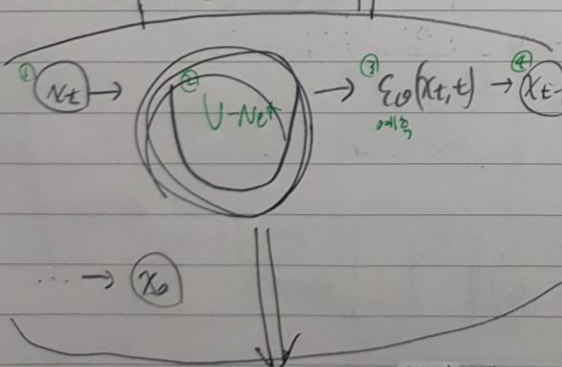 ① xt → ② U-Net → ③ εθ(xt, t) → ④ xt-
예측
... → x0